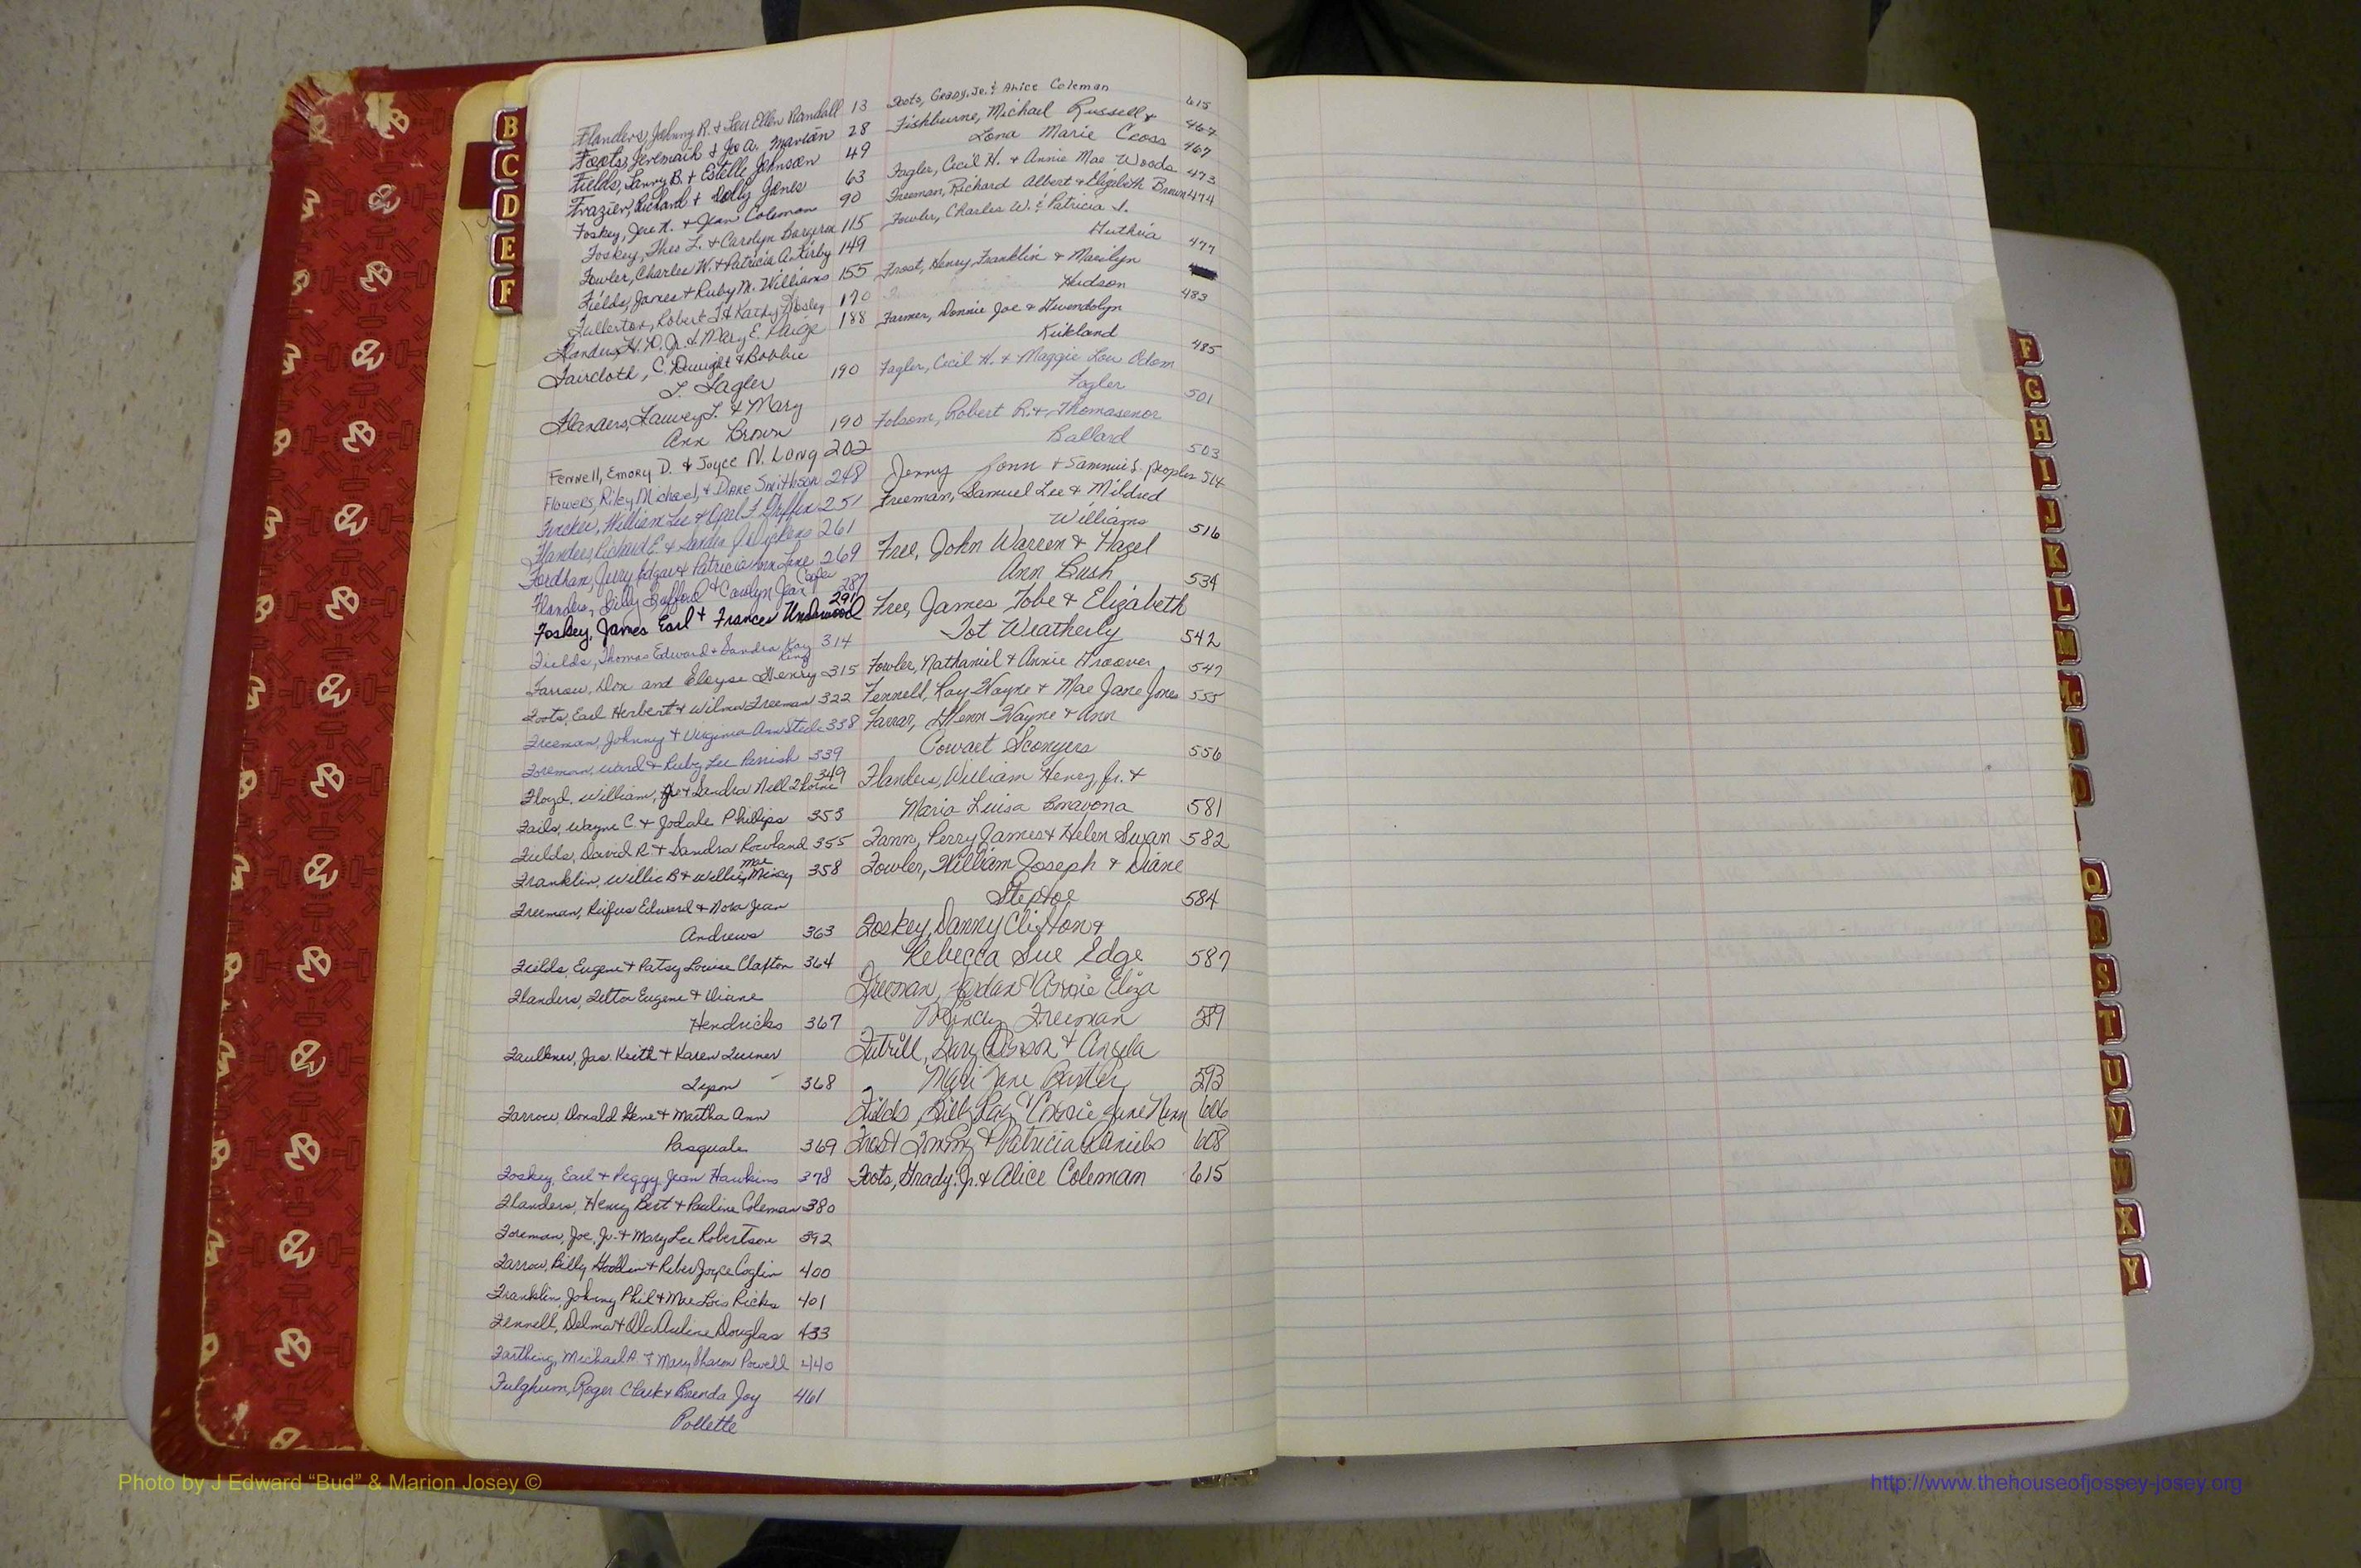 B
C
D
E
F
Flanders, Johnny R. & Lou Ellen Randall 13
Foots, Jeremaih & Jo A. Marian 28
Fields, Lanny B. & Estelle Johnson 49
Frazier, Richard & Dolly Jones 63
Foskey, Jere N. & Jean Coleman 90
Foskey, Theo L. & Carolyn Bargeron 115
Fowler, Charles W. & Patricia A. Kirby 149
Fields, James & Ruby M. Williams 155
Fullerton, Robert J. & Kathy Hosley 170
Flanders, H. D. Jr. & Mary E. Paige 188
Faircloth, C. Dwight & Bobbie
L. Fagler 190
Flanders, L. & Mary
Ann Brown 190
Fennell, Emory D. & Joyce N. Long 202
Flowers, Riley Michael, & Diane Smithson 248
William Lee & Opal F. Griffin 251
Flanders, Richard E. & Sandra J. Dickens 261
Fordham, Jerry Edgar & Patricia Ann Lane 269
Flanders, Billy & Carolyn Jean 287
Foskey, James Earl & Frances Underwood 291
Fields, Thomas Edward & Sandra Kay 314
King
Farrow, Don and Eloyse Henry 315
Foots, Earl Herbert & Wilma Freeman 322
Freeman, Johnny & Virginia Ann Steele 338
Foreman, Ward & Ruby Lee Parrish 339
Floyd, William, & Sandra Nell Thorne 349
Fails, Wayne C. & Jodale Phillips 353
Fields, David R. & Sandra Rowland 355
Franklin, Willie B. & Willie Mae Mincy 358
Freeman, Rufus Edward & Nora Jean
Andrews 363
Fields, Eugene & Patsy Louise Claxton 364
Flanders, Felton Eugene & Diane
Hendricks 367
Faulkner, Jas. Keith & Karen Turner
368
Farrow, Donald Gene & Martha Ann
Pasquale 369
Foskey, Earl & Peggy Jean Hawkins 378
Flanders, Henry Bert & Pauline Coleman 380
Foreman, Joe, Jr. & Mary Lee Robertson 392
Farrow, Billy & Reba Joyce Coglin 400
Franklin, Johnny Phil & Mae Lois Ricks 401
Fennell, Delmar & Ola Douglas 433
Farthing, Michael A. & Mary Sharon Powell 440
Fulghum, Roger Clark & Brenda Joy 461
Pollette
Foots, Grady, Jr. & Alice Coleman 615
Fishburne, Michael Russell & 467
Lona Marie Cross 467
Fagler, Cecil H. & Annie Mae Woods 473
Freeman, Richard Albert & Elizabeth Brown 474
Fowler, Charles W. & Patricia J.
Guthria 477
Frost, Henry Franklin & Marilyn
Hudson 483
Farmer, Donnie Joe & Gwendolyn
Kirkland 485
Fagler, Cecil H. & Maggie Lou Odom
Fagler 501
Folsom, Robert R. & Thomasenor
Ballard 503
Jenny & Sammie L. Peoples 514
Freeman, Samuel Lee & Mildred
Williams 516
Free, John Warren & Hazel
Ann Bush 534
Free, James Tobe & Elizabeth
Tot Weatherly 542
Fowler, Nathaniel & Annie Hoover 547
Fennell, Roy Wayne & Mae Jane Jones 555
Farrar, Glenn Wayne & Ann
Cowart Scongers 556
Flanders, William Henry, Jr. &
Maria Luisa 581
Fann, Perry James & Helen Swan 582
Fowler, William Joseph & Diane
Steptoe 584
Foskey, Danny Clifton &
Rebecca Sue Edge 587
Freeman, Jordan & Annie Eliza
Mincey Freeman 589
Futrill, Gary & Angela
Mari Jane Baxter 593
Fields, Billy Ray & June Nunn 606
Frost & Patricia Daniels 608
Foots, Grady, Jr. & Alice Coleman 615
F
G
H
I
J
K
L
M
Mc
O
Q
R
S
T
U
V
W
X
Y
Photo by J Edward “Bud” & Marion Josey ©
http://www.thehouseofjossey-josey.org